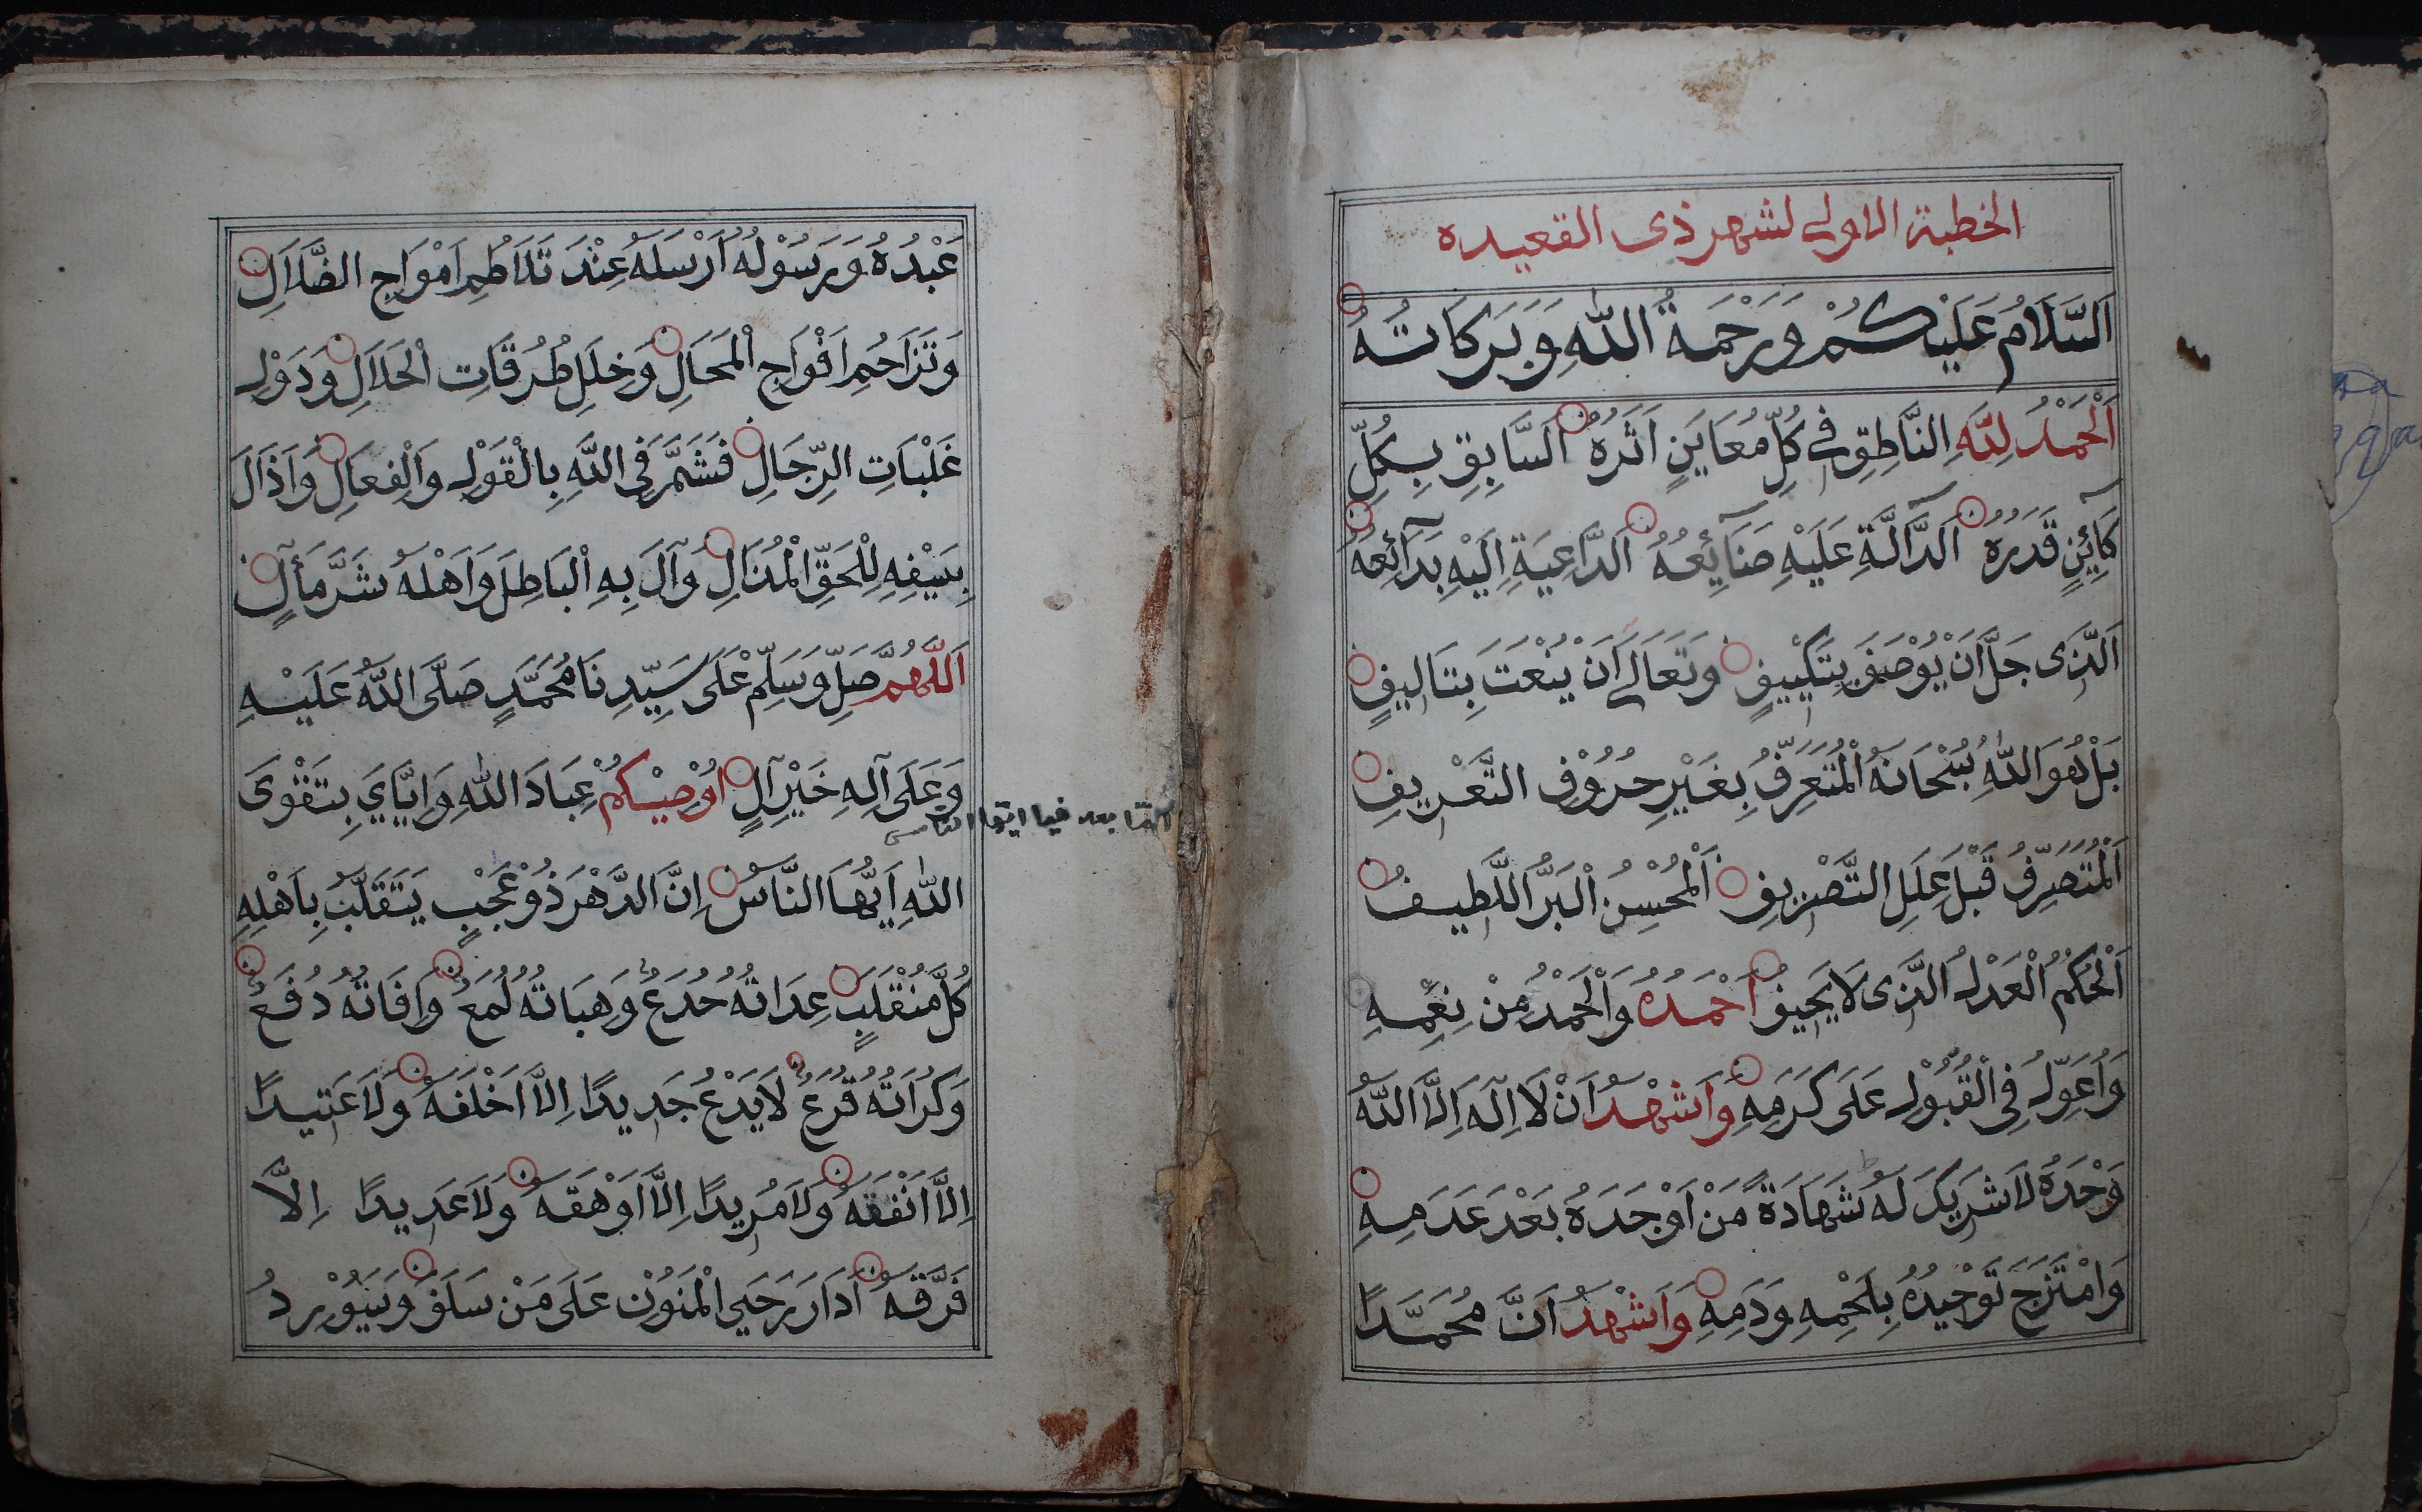 الخطبة الاولى لشهر ذى القعيده
اَلسَّلَامُ عَلَيْكُمْ وَرَحْمَةُ اللّٰهِ وَبَرَكَاتُهُ
اَلْحَمْدُ لِلّٰهِ النَّاطِقِ فِي كُلِّ مُعَايَنٍ اَثَرُهُ اَلسَّابِقِ بِكُلِّ
كَآئِنٍ قَدَرُهُ اَلدَّالَّةِ عَلَيْهِ صَنَآئِعُهُ اَلدَّاعِيَةِ اِلَيْهِ بَدَآئِعُهُ
اَلَّذِى جَلَّ اَنْ يُوْصَفَ بِتَكْيِيْفٍ وَتَعَالَى اَنْ يُنْعَتَ بِتَاْلِيفٍ
بَلْ هُوَ اللّٰهُ سُبْحَانَهُ الْمُتَعَرِّفُ بِغَيْرِ حُرُوْفِ التَّعْرِيفِ
اَلْمُتَصَرِّفُ قَبْلَ عِلَلِ التَّصْرِيفِ اَلْمُحْسِنُ الْبَرُّ اللَّطِيفُ
اَلْحَكَمُ الْعَدْلُ الَّذِى لَا يَحِيفُ اَحْمَدُهُ وَالْحَمْدُ مِنْ نِعَمِهِ
وَاُعَوِّلُ فِي الْقَبُوْلِ عَلَى كَرَمِهِ وَاَشْهَدُ اَنْ لَا اِلٰهَ اِلَّا اللّٰهُ
وَحْدَهُ لَا شَرِيكَ لَهُ شَهَادَةَ مَنْ اَوْجَدَهُ بَعْدَ عَدَمِهِ
وَامْتَزَجَ تَوْحِيْدُهُ بِلَحْمِهِ وَدَمِهِ وَاَشْهَدُ اَنَّ مُحَمَّدًا
عَبْدُهُ وَرَسُوْلُهُ اَرْسَلَهُ عِنْدَ تَلَاطُمِ اَمْوَاجِ الضَّلَالِ
وَتَزَاحُمِ اَفْوَاجِ الْمَحَالِ وَخِلَلِ طُرُقَاتِ الْحَلَالِ وَدَوْلِ
غَلْبَاتِ الرِّجَالِ فَشَمَّرَ فِي اللّٰهِ بِالْقَوْلِ وَالْفِعَالِ وَاَذَالَ
بِسَيْفِهِ لِلْحَقِّ الْمُذَالِ وَآلَ بِهِ الْبَاطِلَ وَاَهْلَهُ شَرَّ مَأٰلٍ
اَللّٰهُمَّ صَلِّ وَسَلِّمْ عَلَى سَيِّدِنَا مُحَمَّدٍ صَلَّى اللّٰهُ عَلَيْهِ
وَعَلَى آلِهِ خَيْرِ آلٍ اُوْصِيْكُمْ عِبَادَ اللّٰهِ وَاِيَّايَ بِتَقْوَى
اما بعد فيا ايها الناس
اللّٰهِ اَيُّهَا النَّاسُ اِنَّ الدَّهْرَ ذُوْ عَجْبٍ يَتَقَلَّبُ بِاَهْلِهِ
كُلَّ مُنْقَلَبٍ عِدَاتُهُ خُدَعٌ وَهِبَاتُهُ لُمَعٌ وَاٰفَاتُهُ دُفَعٌ
وَكَرَاتُهُ قُرَعٌ لَا يَدَعُ جَدِيدًا اِلَّا اَخْلَقَهُ وَلَا عَتِيدًا
اِلَّا اَنْفَقَهُ وَلَا مُرِيدًا اِلَّا اَوْهَقَهُ وَلَا عَدِيدًا اِلَّا
فَرَّقَهُ اَدَارَ رَحَي الْمَنُوْنِ عَلَى مَنْ سَلَفَ وَسَيُوْرِدُ